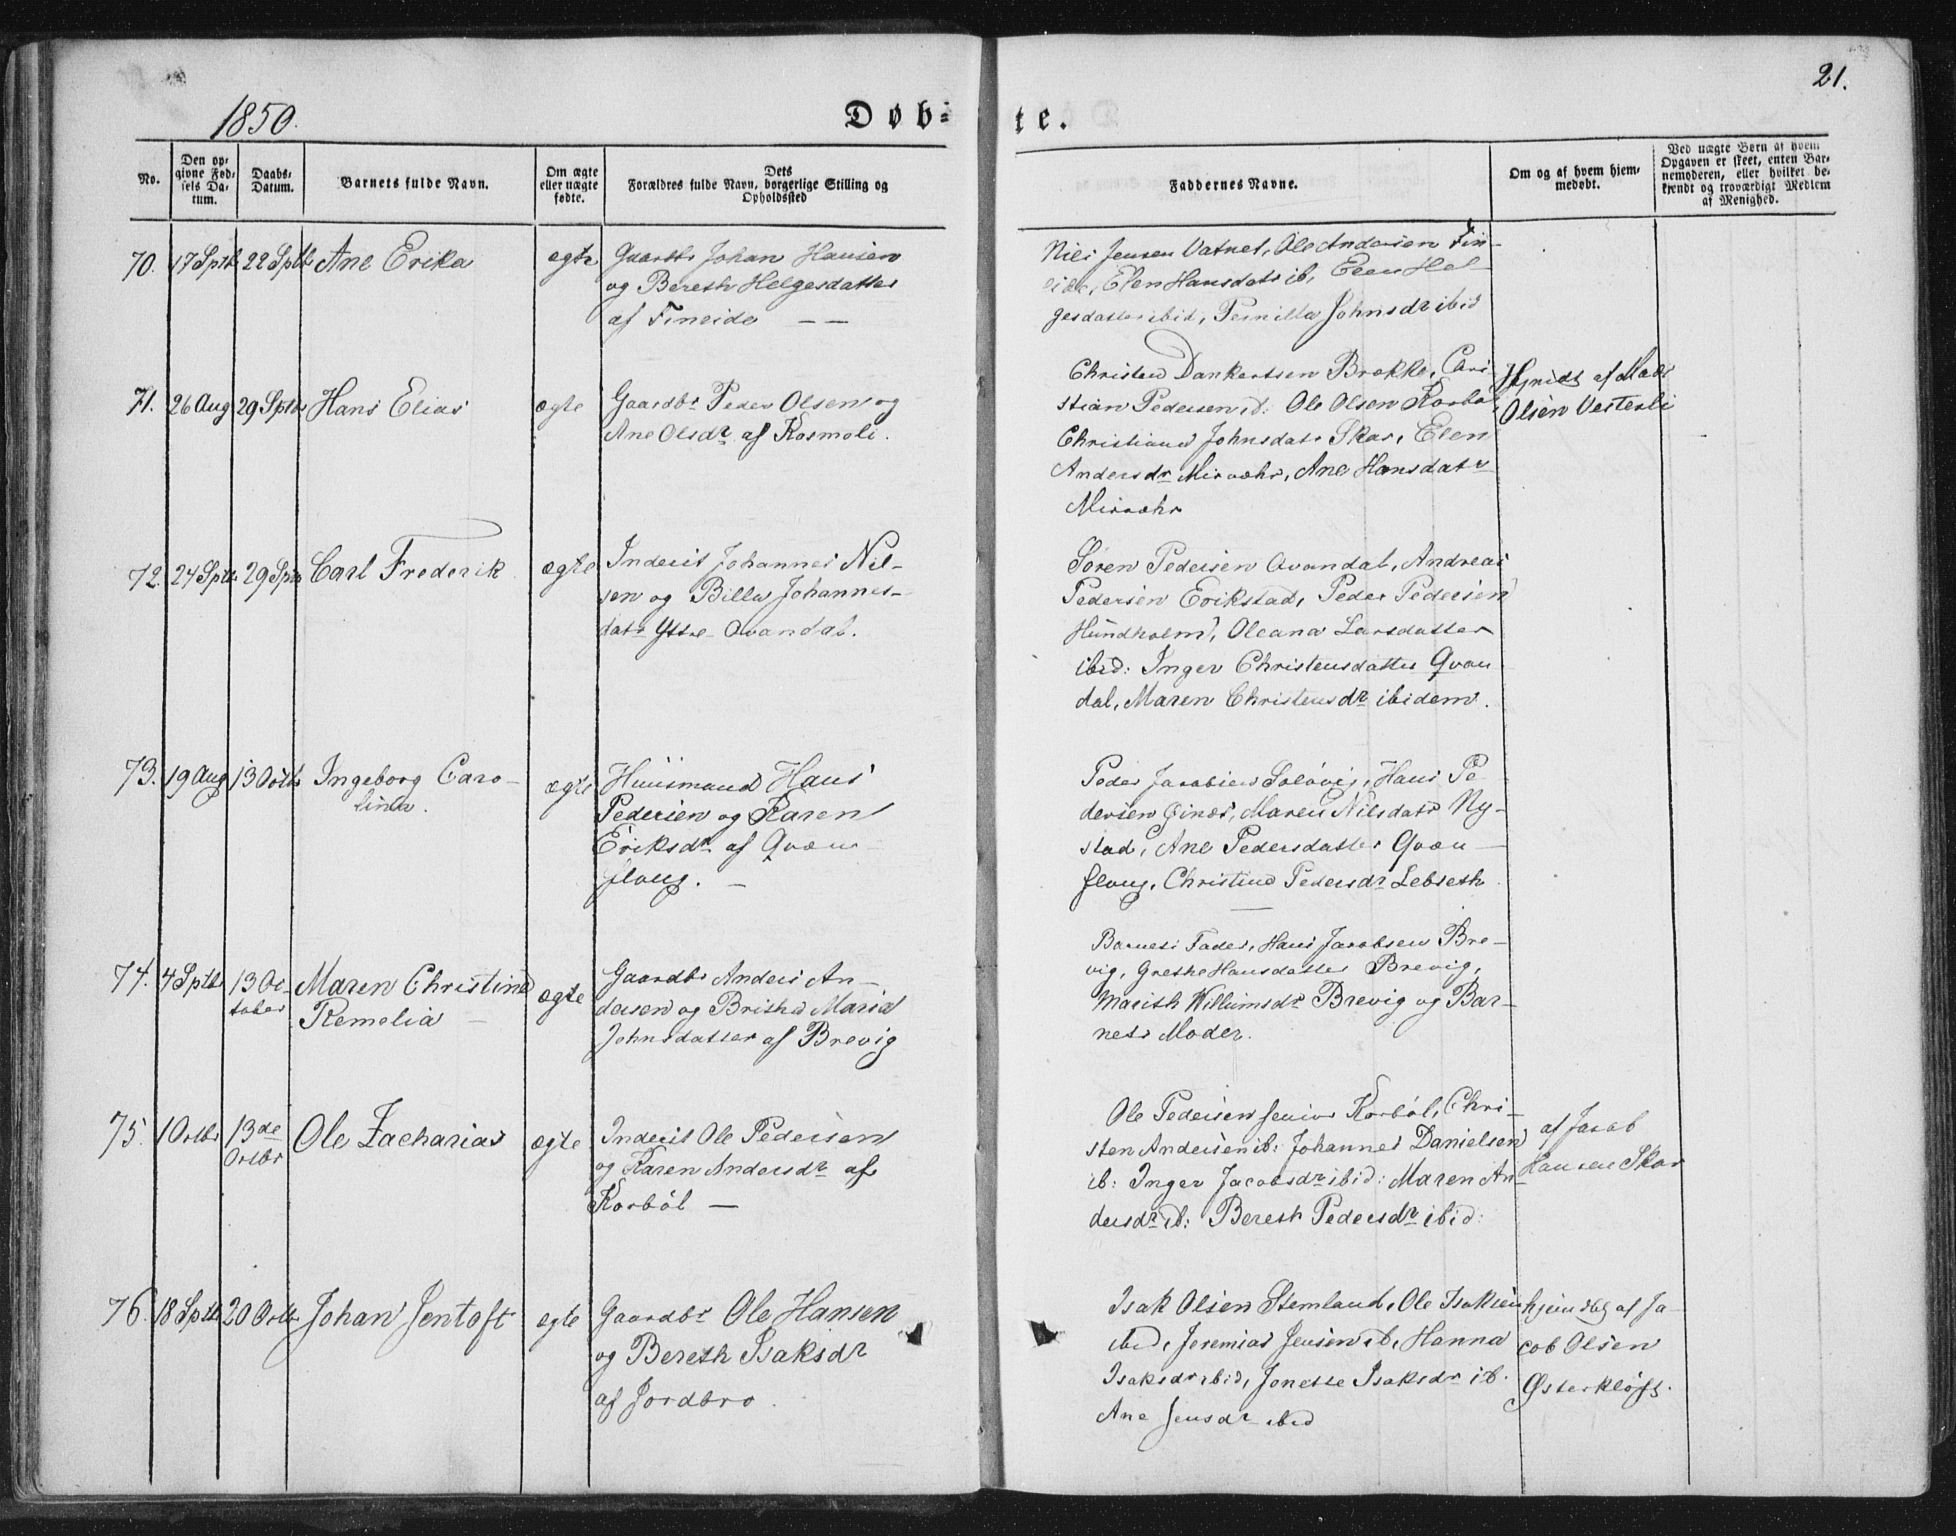 1850.
Døb-
te.
21.
No.
Den op-
givne Fød-
sels Da-
tum.
Daabs-
Datum.
Barnets fulde Navn.
Om ægte
eller uægte
fødte.
Dets
Forældres fulde Navn, borgerlige Stilling og
Opholdssted
Faddernes Navne.
Om og af hvem hjem-
medøbt.
Ved uægte Børn af hvem
Opgaven er skeet, enten Bar-
nemoderen, eller hvilket be-
kjendt og troværdigt Medlem
af Menighed.
70. 17 Sptb 22 Sptbr Ane Erika ægte Gaardbr Johan Hansen
og Bereth Helgesdatter
af Fineide
Niels Jensen Vatnet, Ole Andersen Fin-
eide, Elen Hansdatr ib, Elen Hel-
gesdatter ibid, Pernilla Johnsdr ibid
71. 26 Aug 29 Sptbr Hans Elias ægte Gaardbr Peder Olsen og
Ane Olsdr af Kosmoli.
Christen Dankertsen Brække, Chri-
stian Pedersen id: Ole Olsen Korbøl
Christiana Johnsdatr Skar, Elen
Andersdr Misvæhr, Ane Hansdatr
Misvæhr
Hjmdt af Mads
Olsen Vesterli
72. 24 Sptbr 29 Sptbr Carl Frederik ægte Inderst Johannes Nil-
sen og Billa Johannes-
datr Ytre Qvandal.
Søren Pedersen Qvandal, Andreas
Pedersen Erikstad, Peder Pedersen
Hundholm, Oleana Larsdatter
ibid: Inger Christensdatter Qvan
dal, Maren Christensdr ibidem.
73. 19 Aug 13 Octbr Ingeborg Caro-
lina.
ægte Huusmand Hans
Pedersen og Karen
Eriksdr af Qvæn-
floug.
Peder Jacobsen Soløvig, Hans Pe
dersen Finæs, Maren Nilsdatr Ny-
stad, Ane Pedersdatter Qvæn-
floug, Christine Pedersdr Lebseth
74. 4 Sptbr 13 Oc-
tober
Maren Christine
Remelia
ægte Gaardbr Anders An-
dersen og Britha Maria
Johnsdatter af Brevig
Barnets Fader, Hans Jacobsen Bre-
vig, Grethe Hansdatter Brevig,
Marith Willumsdr Brevig og Bar-
nets Moder.
75. 1 Octbr 13de
Octbr
Ole Zacharias ægte Inderst Ole Pedersen
og Karen Andersdr af
Korbøl
Ole Pedersen senior Korbøl, Chri-
sten Andersen ib: Johannes Danielsen
ib: Inger Jacobsdr ibid: Maren An-
dersdr ib: Bereth Pedersdr ibid:
af Jacob
Hansen Skar
76. 18 Sptb 20 Octbr Johan Jentoft ægte Gaardbr Ole Hansen
og Bereth Isaksdr
af Jordbro
Isak Olsen Stemland, Ole Isaksen
ibid, Jeremias Jensen ib, Hanna
Isaksdr ibid, Jonette Isaksdr ib.
Ane Jensdr ibid
hjemdbt af Ja-
cob Olsen
Østerkløft.